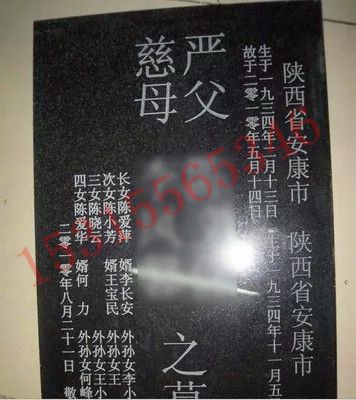 陕西省安康市 陕西省安康市
生于一九三四年二月十三日 生于一九三四年十一月五
故于二〇一〇年五月十四日
严父
慈母 之墓
长女陈爱萍 婿李长安 外孙女李小
次女陈小芳 婿王宝民 外孙女王
三女陈晓云 外孙女王小
四女陈爱华 婿何力 外孙女何峰
二〇一〇年八月二十一日 敬